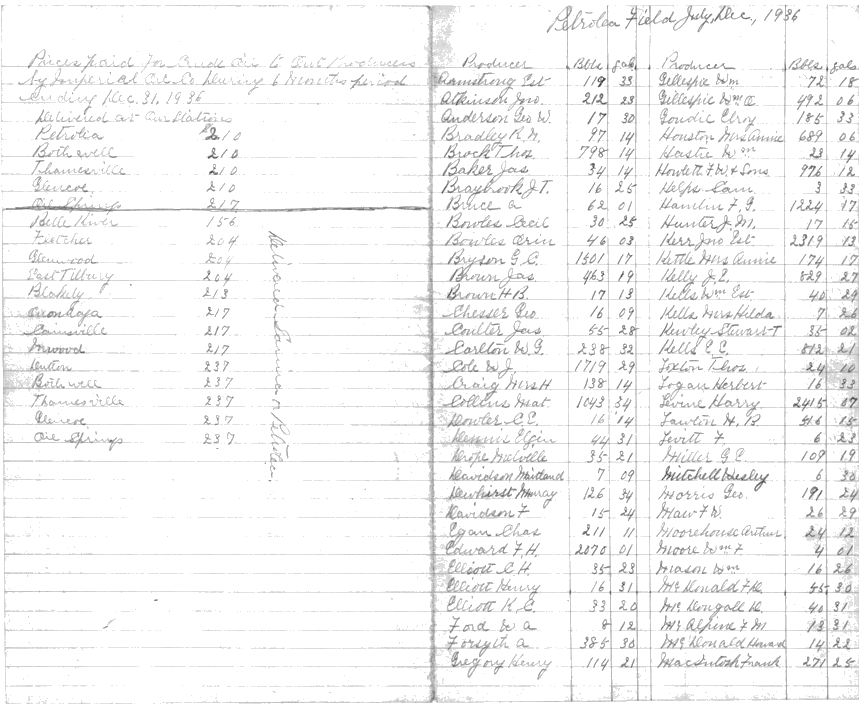 Prices paid for Crude Oil to Our Producers
by Imperial Oil Co. During 6 Months period
Ending Dec. 31, 1936
Delivered at Our Stations
Petrolia 210
Bothwell 210
Thamesville 210
Glencoe 210
Oil Springs 217
Belle River 156
Fletcher 204
Glenwood 204
East Tilbury 204
Blakely 213
Onondaga 217
Cainsville 217
Inwood 217
Dutton 237
Bothwell 237
Thamesville 237
Glencoe 237
Oil Springs 237
Delivered Sarnia or Petrolia.
Petrolea Field July, Dec., 1936
Producer Bbls gals Producer Bbls gals
Armstrong Est 119 33 Gillespie Wm 72 18
Atkinson Jno. 212 23 Gillespie Wm A. 492 06
Anderson Geo W. 17 30 Goudie Elroy 185 33
Bradley R. N. 97 14 Houston Mrs Annie 689 06
Brock Thos. 798 14 Hastie Wm 23 14
Baker Jas 34 14 Howlett F. W & Sons 976 12
Braybrook J. T. 16 25 Helps Sam 3 33
Bruce A 62 01 Hamlin F. G. 1224 17
Bowles Cecil 30 25 Hunter J. M. 17 15
Bowles Orin 46 03 Kerr Jno Est 2319 13
Bryson G. C. 1501 17 Kettle Mrs Annie 174 17
Brown Jas. 463 19 Kelly J. E. 829 27
Brown H B. 17 13 Kells Wm Est 40 29
Chesser Geo 16 09 Kells Mrs Hilda 7 26
Coulter Jas 55 28 Kewley Stewart T 35 02
Carlton W G. 238 32 Kells E C. 812 21
Cole W J. 1719 29 Loxton Thos. 24 10
Craig Mrs H 138 14 Logan Herbert 16 33
Collins Mat. 1043 34 Levine Harry 2415 07
Dowler C E. 16 14 Lawton H. B 416 15
Dennis Elgin 44 31 Levitt F 6 23
Drope Melville 35 21 Miller G C. 109 19
Davidson Maitland 7 09 Mitchell Wesley 6 30
Dewhirst Murray 126 34 Morris Geo. 191 24
Davidson F 15 24 Maw F W. 26 29
Egan Chas 211 11 Moorehouse Arthur 24 12
Edward F. H. 2070 01 Moore Wm F 4 01
Elliott C H. 35 23 Mason Wm 16 26
Elliott Henry 16 31 McDonald F K. 45 30
Elliott K. E. 33 20 McDougall K. 40 31
Ford W A 8 12 McAlpine F M 13 31
Forsyth A 385 30 McDonald Howard 14 22
Gregory Henry 114 21 MacIntosh Frank 271 25